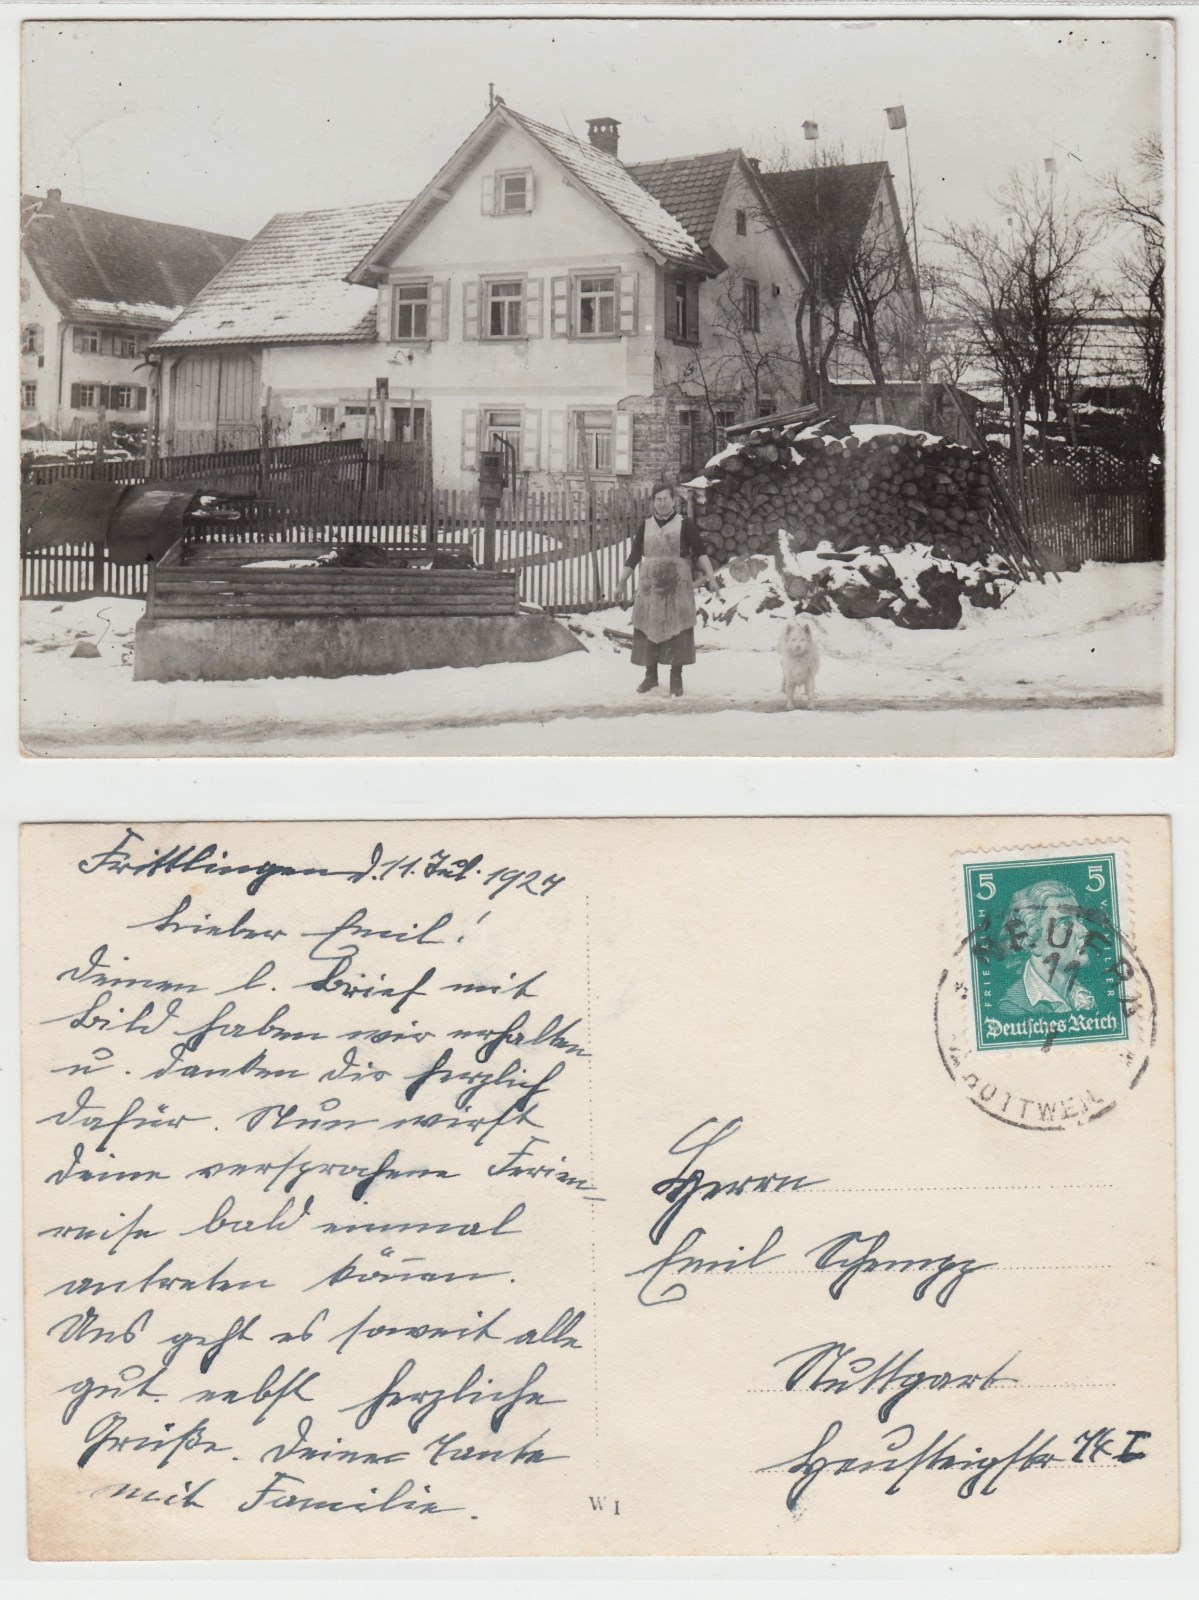 Frittlingen d. 11. Jul. 1927
Lieber Emil!
Deinen l. Brief mit
Bild haben wir erhalten
u. danken Dir herzlich
dafür. Nun wirst
Deine versprochene Ferien-
reise bald einmal
antreten können.
Uns geht es soweit alle
gut. nebst herzliche
Grüße. Deine Tante
mit Familie.
W I
5 5
FRIEDRICH V. SCHILLER
Deutsches Reich
NEUFRA
11
7
ROTTWEIL
Herrn
Emil Schempp
Stuttgart
Heusteigstr. I